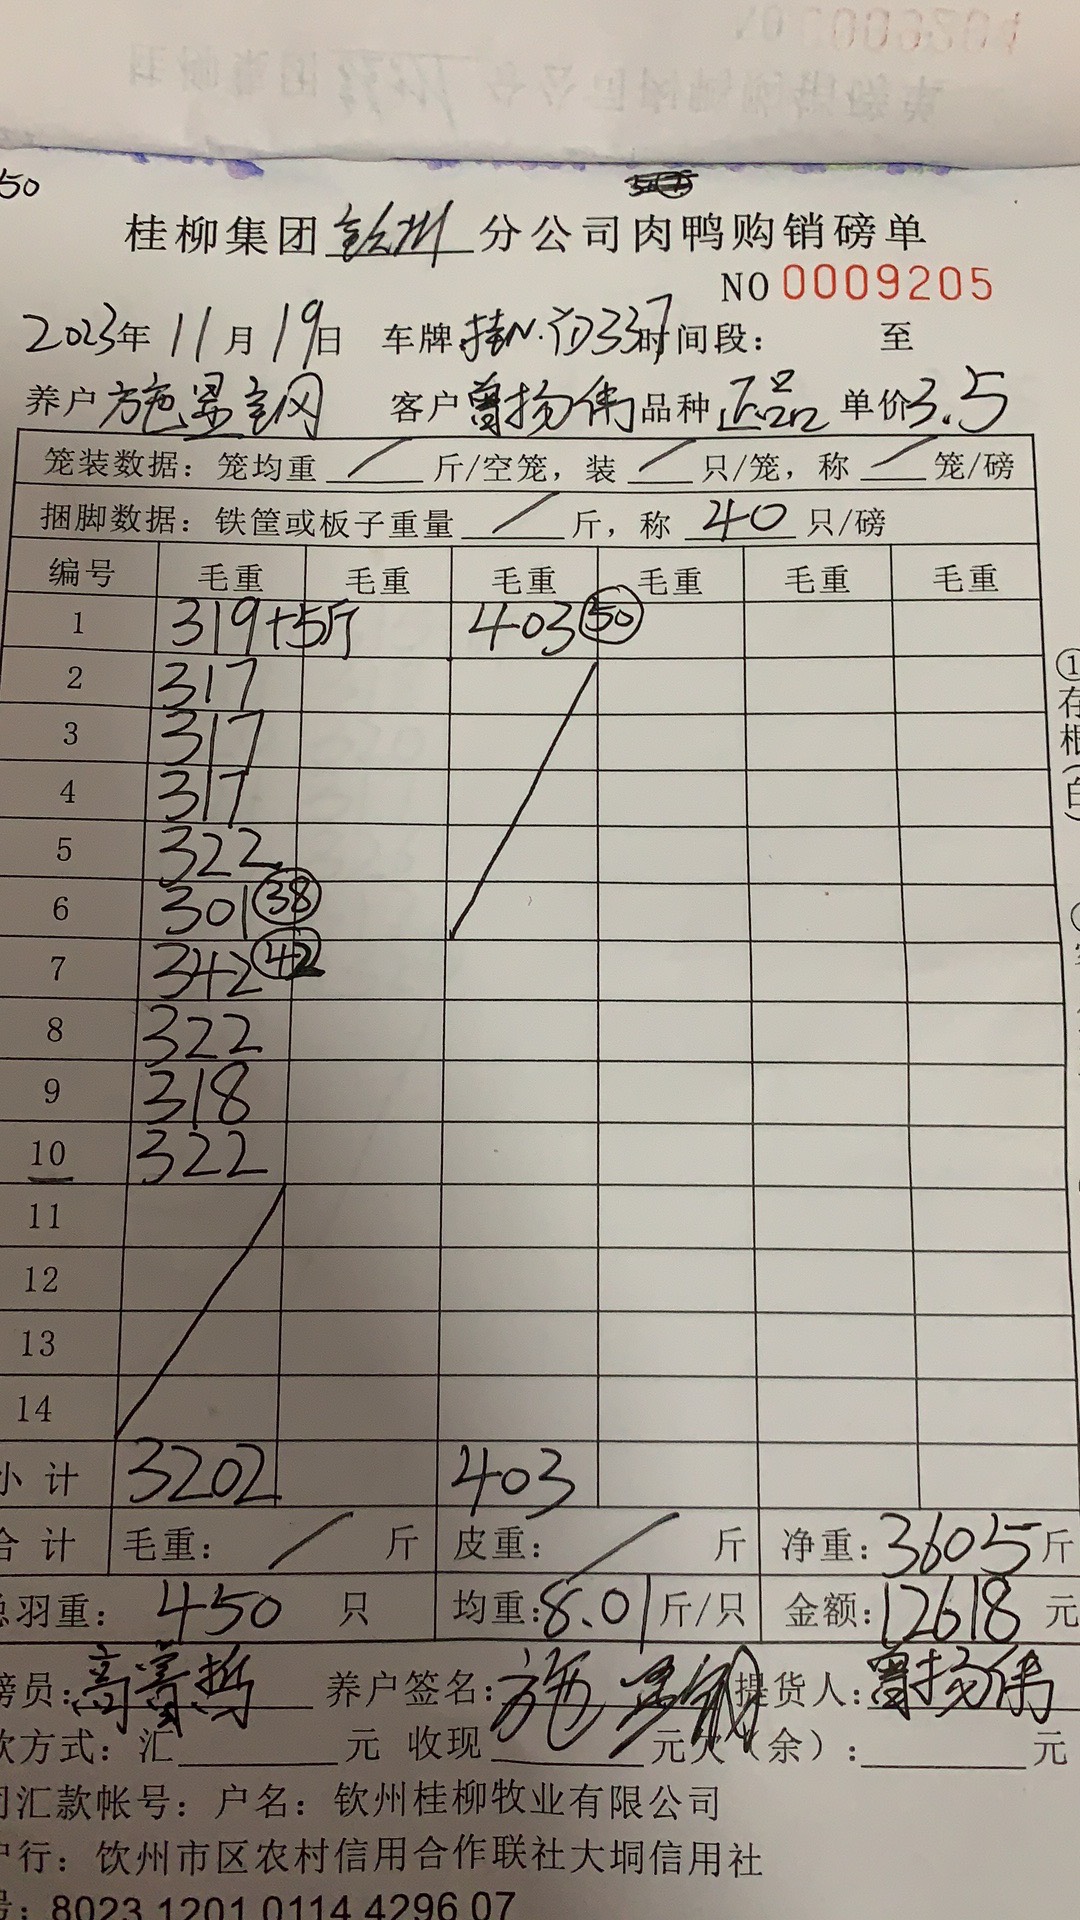 50
桂柳集团钦州分公司肉鸭购销磅单
NO 0009205
2023年11月19日 车牌 桂N·D337 时间段： 至
养户 施显 客户 曾扬伟 品种 正品 单价3.5
笼装数据：笼均重 / 斤/空笼，装 / 只/笼，称 / 笼/磅
捆脚数据：铁筐或板子重量 / 斤，称 40 只/磅
编号 毛重 毛重 毛重 毛重 毛重 毛重
1 319+5斤 403 50
2 317
3 317
4 317
5 322
6 301 38
7 342 42
8 322
9 318
10 322
11
12
13
14
小计 3202 403
合计 毛重： / 斤 皮重： / 斤 净重：3605斤
总羽重： 450 只 均重：8.01斤/只 金额：12618元
磅员： 高 哲 养户签名：施 提货人：曾扬伟
款方式：汇 元 收现 元欠（余）： 元
司汇款帐号：户名：钦州桂柳牧业有限公司
户行：钦州市区农村信用合作联社大垌信用社
号：8023 1201 0114 4296 07
①存根（白）